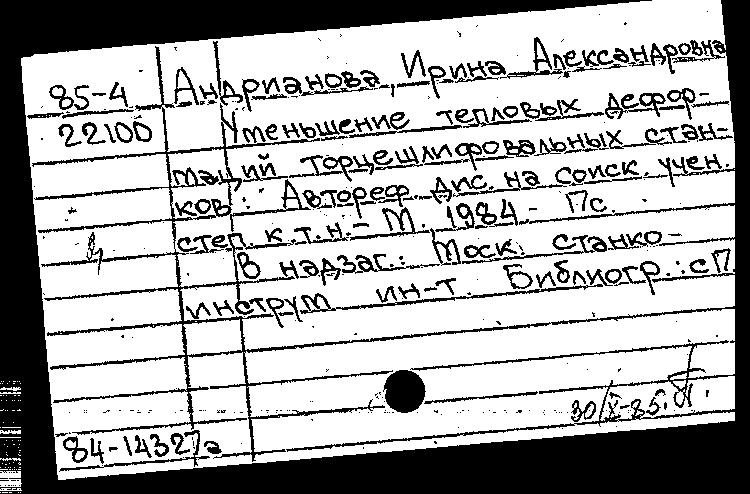 85-4 Андрианова, Ирина Александровна
22100 Уменьшение тепловых дефор-
маций торцешлифовальных стан-
ков: Автореф. дис. на соиск. учен.
степ. к.т.н. - М., 1984. - 17с.
В надзаг.: Моск. станко-
инструм ин-т. Библиогр.: с17
30/X-85.
84-14327а